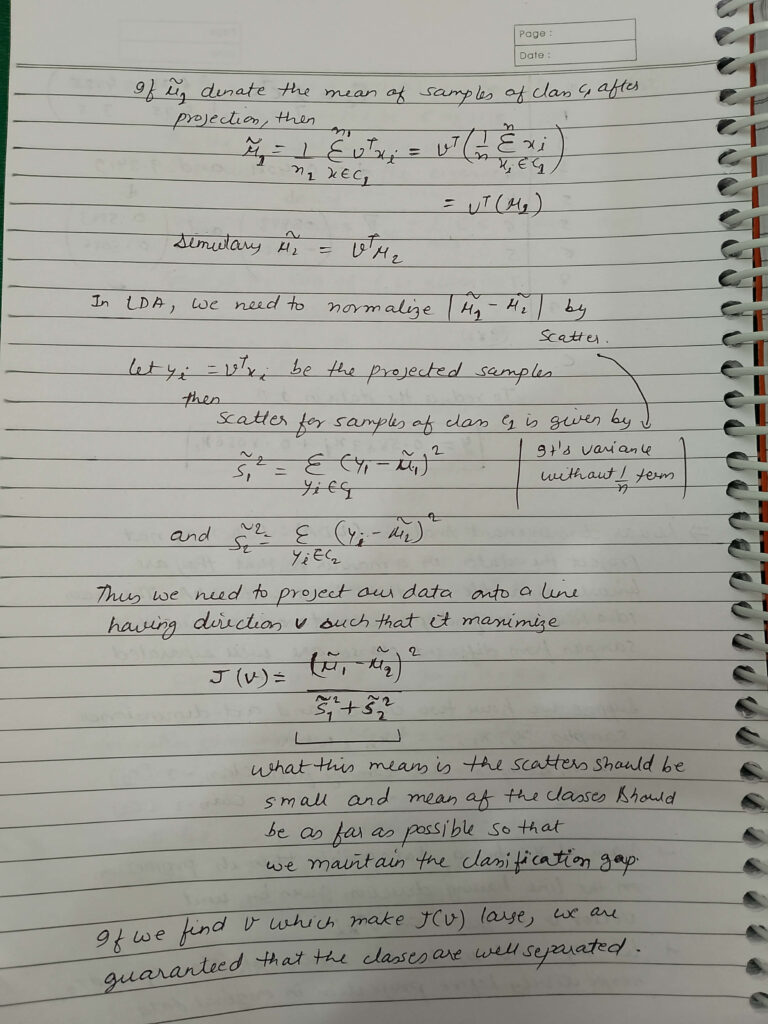 Page :
Date :
If μ̃₁ denate the mean of samples of class c₁ after
projection, then
μ̃₁ = 1/n₁ Σ_{x∈C₁}^{n₁} vᵀxᵢ = vᵀ(1/n Σ_{xᵢ∈C₁}^{n} xᵢ)
= vᵀ(μ₁)
Similary μ̃₂ = vᵀμ₂
In LDA, we need to normalize |μ̃₁ - μ̃₂| by
scatter.
let yᵢ = vᵀxᵢ be the projected samples
then
scatter for samples of class c₁ is given by
s̃₁² = Σ_{yᵢ∈C₁} (yᵢ - μ̃₁)²
It's variance
without 1/n term
and s̃₂² = Σ_{yᵢ∈C₂} (yᵢ - μ̃₂)²
Thus we need to project our data onto a line
having direction v such that it maximize
J(v) = (μ̃₁ - μ̃₂)² / s̃₁² + s̃₂²
what this means is the scatters should be
small and mean of the classes should
be as far as possible so that
we maintain the classification gap.
If we find v which make J(v) large, we are
guaranteed that the classes are well separated.